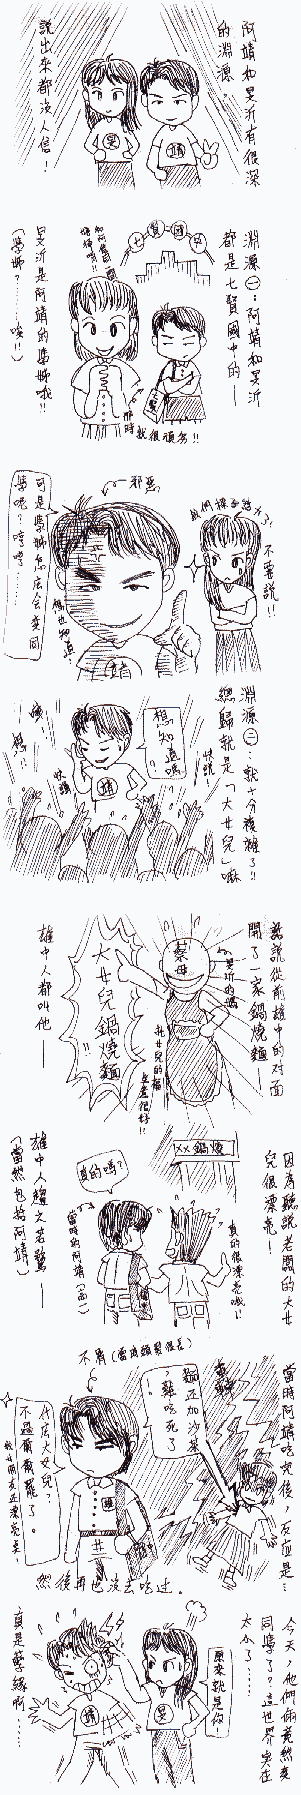 阿靖和旻沂有很深
的淵源。
說出來都沒人信！
旻
靖
淵源㊀：阿靖和旻沂
都是七賢國中的—
七賢國中
旻沂是阿靖的學姊哦!!
（學姊？……唉!!）
那時
就很頑劣!!
邪惡
我們樣子憨大了!
不要說!!
可是學姊怎麼會變同
學呢？哼哼……
靖
淵源㊁：就十分複雜了!!
總歸就是「大女兒」嘛
想知道嗎
快說
快說
靖
話說從前雄中的对面
開了一家鍋燒麵—
蔡母
旻沂的媽
大女兒鍋燒麵
!!
託女兒的福
生意很好!!
雄中人都叫他—
因為聽說老闆的大女
兒很漂亮！
××鍋燒
真的嗎？
真的很漂亮哦!!
當時的阿靖(高一)
雄中人趨之若鶩—
（當然也為阿靖）
當時阿靖吃完後，反應是…
麵還加沙茶
，難吃死了
不屑(當時頭髮很長)
什麼大女兒？
不過爾爾罷了。
我女朋友还漂亮点!
然後再也沒去吃过。
今天，他們倆竟然变
同學了？這世界实在
太小了……
原來就是你!
旻
靖
真是孽緣啊……